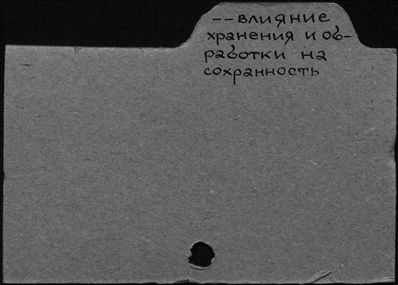 --влияние
хранения и об-
работки на
сохранность